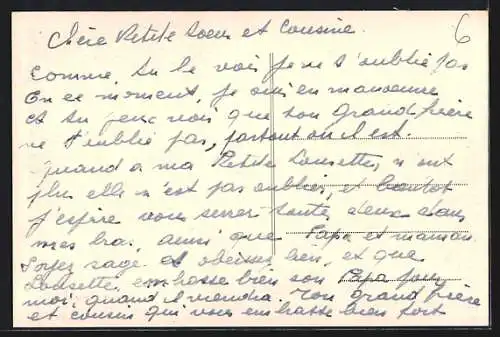 6
Chère Petite Soeur et Cousine.
Comme tu le vois je ne t'oublie pas
En ce moment, je suis en manoeuvre
et tu peux voir que ton Grand frère
ne t'oublie pas, partout où il est.
Quand a ma Petite Lousette, n'ont
plus elle n'est pas oubliée, et bientot
j'espère vous serrer toute deux dans
mes bras. ainsi que Papa et maman.
Soyez sage et obeissez bien, et que
Lousette embrasse bien son Papa pour
moi, quand il viendra. Ton Grand frère
et cousin qui vous embrasse bien fort